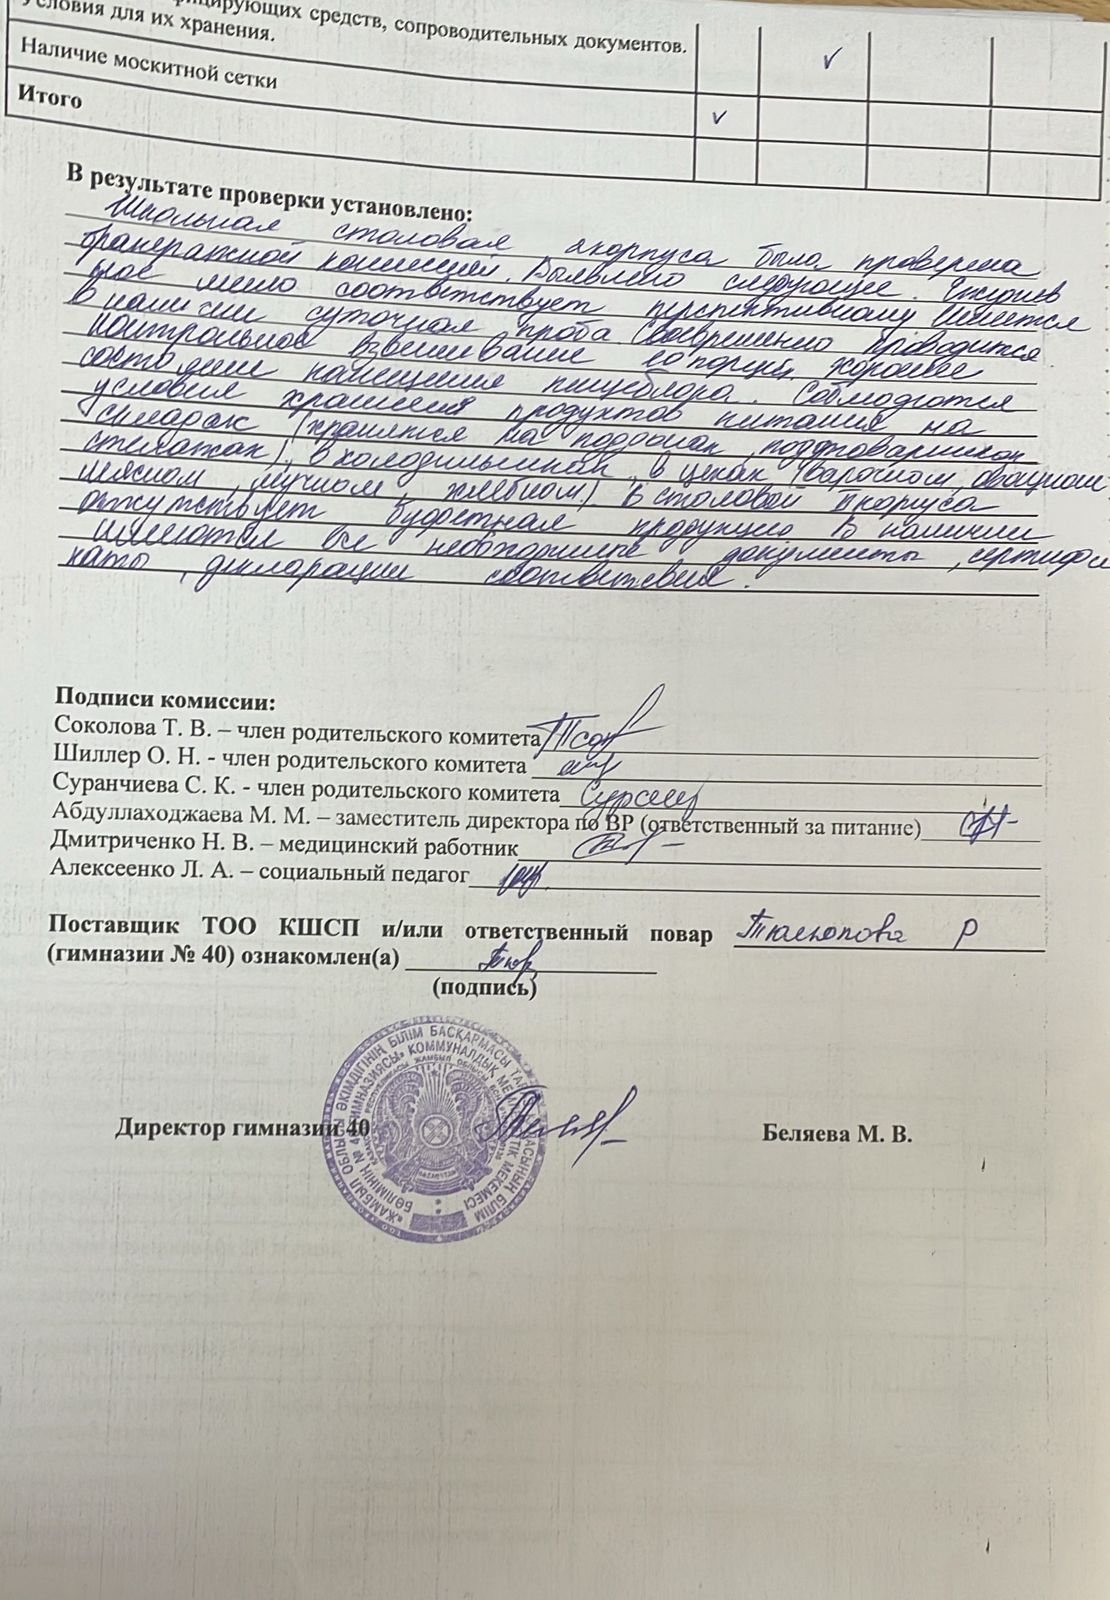 ицирующих средств, сопроводительных документов.
Условия для их хранения.
Наличие москитной сетки
Итого
В результате проверки установлено:
Школьная столовая 2 корпуса была проверена
бракеражной комиссией. Выявлено следующее. Ежеднев
ное меню соответствует перспективному. Имеется
в наличии суточная проба. Своевременно проводится
контрольное взвешивание порций. Хорошее
состояние помещения пищеблока. Соблюдаются
условия хранения продуктов питания на
складах (хранятся на поддонах, подтоварниках
стелажах), в холодильниках, в цехах (варочном, овощном
мясном, мучном, хлебном). В столовой корпуса
отсутствует буфетная продукция. В наличии
имеются все необходимые документы, сертифи
каты, декларации соответствия.
Подписи комиссии:
Соколова Т. В. – член родительского комитета
Шиллер О. Н. - член родительского комитета
Суранчиева С. К. - член родительского комитета
Абдуллаходжаева М. М. – заместитель директора по ВР (ответственный за питание)
Дмитриченко Н. В. – медицинский работник
Алексеенко Л. А. – социальный педагог
Поставщик ТОО КШСП и/или ответственный повар Тюлюпова Р
(гимназии № 40) ознакомлен(а)
(подпись)
Директор гимназии 40 Беляева М. В.
«ЖАМБЫЛ ОБЛЫСЫ ӘКІМДІГІНІҢ БІЛІМ БАСҚАРМАСЫ ТАРАЗ ҚАЛАСЫНЫҢ БІЛІМ
БӨЛІМІНІҢ № 40 ГИМНАЗИЯСЫ» КОММУНАЛДЫҚ МЕМЛЕКЕТТІК МЕКЕМЕСІ